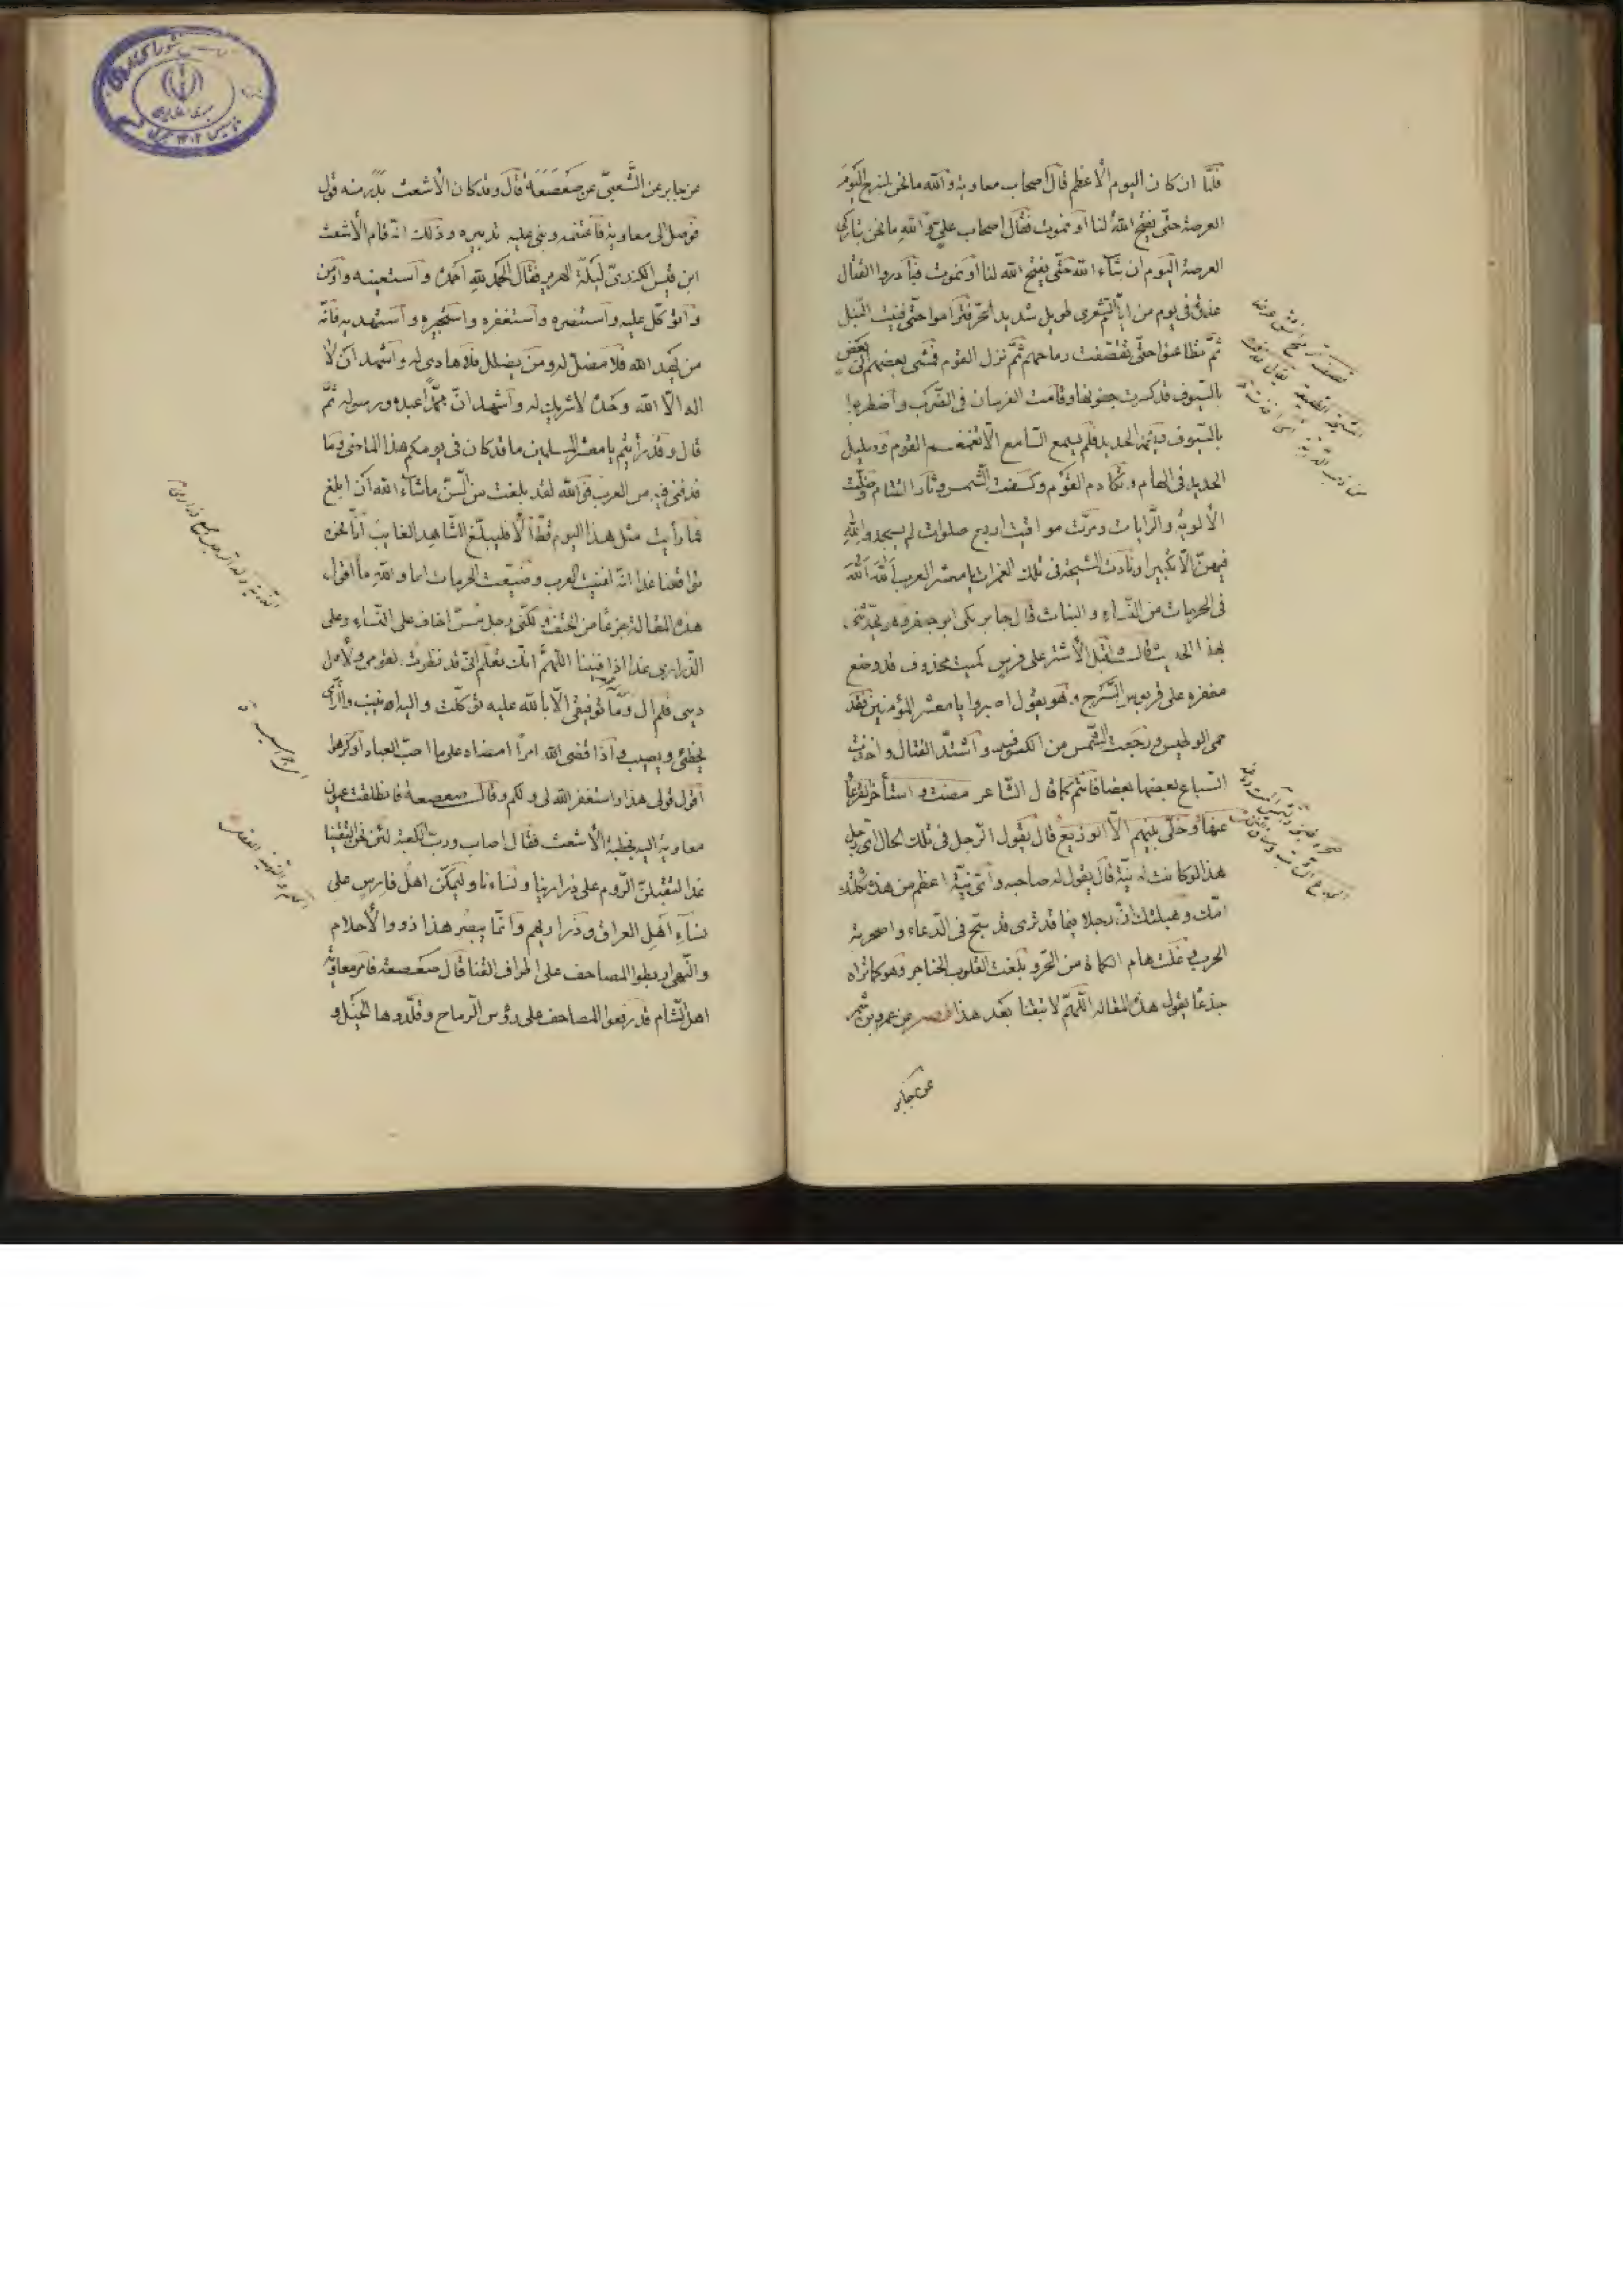 فلمّا ان كان اليوم الأعظم قال اصحاب معاوية والله ما نحن لنبرح اليوم
العرصة حتّى يفتح الله لنا او نموت فقال اصحاب علي والله ما نحن بتاركي
العرصة اليوم ان شاء الله حتّى يفتح الله لنا او نموت فبادروا القتال
غدوة في يوم من ايّام الشعرى طويل شديد الحرّ فتراموا حتّى فنيت النبل
ثمّ تطاعنوا حتّى تقصّفت رماحهم ثمّ نزل القوم فمشى بعضهم الى بعض
بالسّيوف قد كسرت جفونها وقامت الفرسان في الرّكب واضطربوا
بالسّيوف وبعمد الحديد فلم يسمع السّامع الّا تغمغم القوم وصليل
الحديد في الهام وتكادم القوم وكسفت الشّمس وثار القتام وضلّت
الألوية والرّايات ومرّت مواقيت اربع صلوات لم يسجد لله
فيهنّ الّا تكبيرا ونادت المشيخة في تلك الغمرات يا معشر العرب الله الله
في الحرمات من النّساء والبنات قال جابر بكى ابو جعفر وهو يحدّثنى
بهذا الحديث قال واقبل الأشتر على فرس كميت محذوف قد وضع
مغفره على قربوس السّرج وهو يقول اصبروا يا معشر المؤمنين فقد
حمى الوطيس ورجعت الشّمس من الكسوف واشتدّ القتال واخذت
السّباع بعضها بعضا فانتم كما قال الشّاعر مضت واستأخر القرعاء
عنها وخلّى بينهم الّا الوزيع قال يقول الرّجل في تلك الحال اىّ رجل
هذا لو كانت له نيّة قال يقول له صاحبه واىّ نيّة اعظم من هذه ثكلتك
امّك وهبلتك انّ رجلا فيما قد ترى قد سبّح في الدّماء واضجرته
الحرب وقد غلت هام الكماة من الحرّ وبلغت القلوب الحناجر وهو كما تراه
جذعا يقول هذه المقالة اللّهمّ لا تبقنا بعد هذا نصر عن عمرو بن شمر
عن جابر
عن جابر عن الشّعبيّ عن صعصعة قال وقد كان الأشعث بدر منه قول
فوصل الى معاوية فاغتنمه وبنى عليه تدبيره وذلك انّه قام الأشعث
ابن قيس الكندىّ ليلة الهرير فقال الحمد لله احمده واستعينه واومن
به واتوكّل عليه واستنصره واستغفره واستجيره واستهديه فانّه
من يهد الله فلا مضلّ له ومن يضلل فلا هادي له واشهد ان لا
اله الّا الله وحده لا شريك له واشهد انّ محمّدا عبده ورسوله ثمّ
قال وقد رأيتم يا معشر المسلمين ما قد كان في يومكم هذا الماضى وما
قد فنى فيه من العرب فوالله لقد بلغت من السّنّ ما شاء الله ان ابلغ
فما رأيت مثل هذا اليوم قطّ الا فليبلّغ الشّاهد الغايب انّا نحن
تواقفنا غدا انّه لفنيت العرب وضيّعت الحرمات اما والله ما اقول
هذه المقالة جزعا من الحتف ولكنّي رجل مسنّ اخاف على النّساء وعلى
الذّراري غدا اذا فنينا اللّهمّ انّك تعلم انّي قد نظرت لقومي ولأهل
ديني فلم ال وما توفيقي الّا بالله عليه توكّلت واليه انيب والرّأي
يخطئ ويصيب واذا قضى الله امرا امضاه على ما احبّ العباد او كرهوا
اقول قولي هذا واستغفر الله لي ولكم وقال صعصعة فانطلقت عيون
معاوية اليه بخطبة الأشعث فقال اصاب وربّ الكعبة لئن نحن التقينا
غدا لتقبلنّ الرّوم على ذرارينا ونساءنا وليمكّنّ اهل فارس على
نساء اهل العراق وذراريهم وانّما يبصر هذا ذوو الأحلام
والنّهى اربطوا المصاحف على اطراف القنا قال صعصعة فامر معاوية
اهل الشّام قد رفعوا المصاحف على رؤس الرّماح وقلّدوها الخيل و